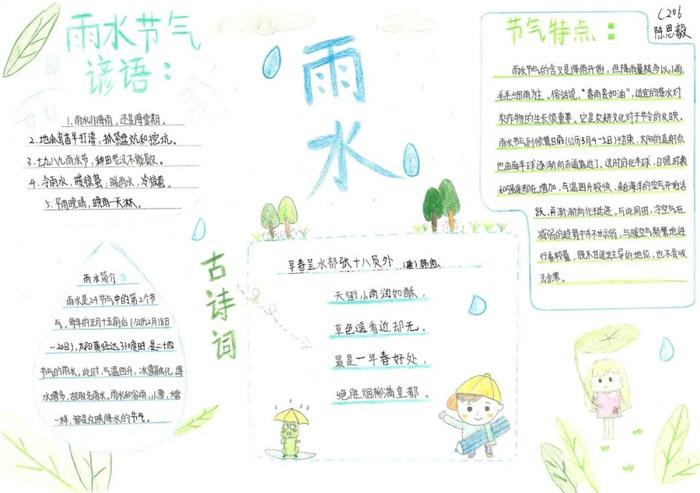 雨水节气
谚语：
1. 雨水非降雨，还是降雪期。
2. 地瓜育苗早打谱，抓紧盘炕和挖坑。
3. 七九八九雨水节，种田老汉不能歇。
4. 冷雨水，暖惊蛰，暖雨水，冷惊蛰。
5. 早雨晚晴，晚雨一天淋。
雨水简介
雨水是24节气中的第2个节
气，每年的正月十五前后（公历2月18日
-20日），太阳黄经达330度时，是二十四
节气的雨水。此时，气温回升，冰雪融化，降
水增多，故取名雨水。雨水和谷雨，小雪，大雪
一样，都是反映降水的节气。
雨
水
古诗词
早春呈水部张十八员外
天街小雨润如酥，
草色遥看近却无。
最是一年春好处，
绝胜烟柳满皇都。
C206
陈思毅
节气特点：
雨水节气的含义是降雨开始，但降雨量级多以小雨，
毛毛细雨为主。俗话说，“春雨贵如油”，适宜的降水对
农作物的生长很重要，它是农耕文化对于节令的反映。
雨水节气到惊蛰日前（公历3月4-5日）结束，太阳的直射点
也由南半球逐渐向赤道靠近了，这时的北半球，日照时数
和强度都在增加，气温回升较快，来自海洋的空气开始活
跃，并渐渐向北挺进，与此同时，冷空气在
减弱的趋势中并不甘示弱，与暖空气频繁地进
行着较量，既不甘退出主导的地位，也不肯收
去余寒。